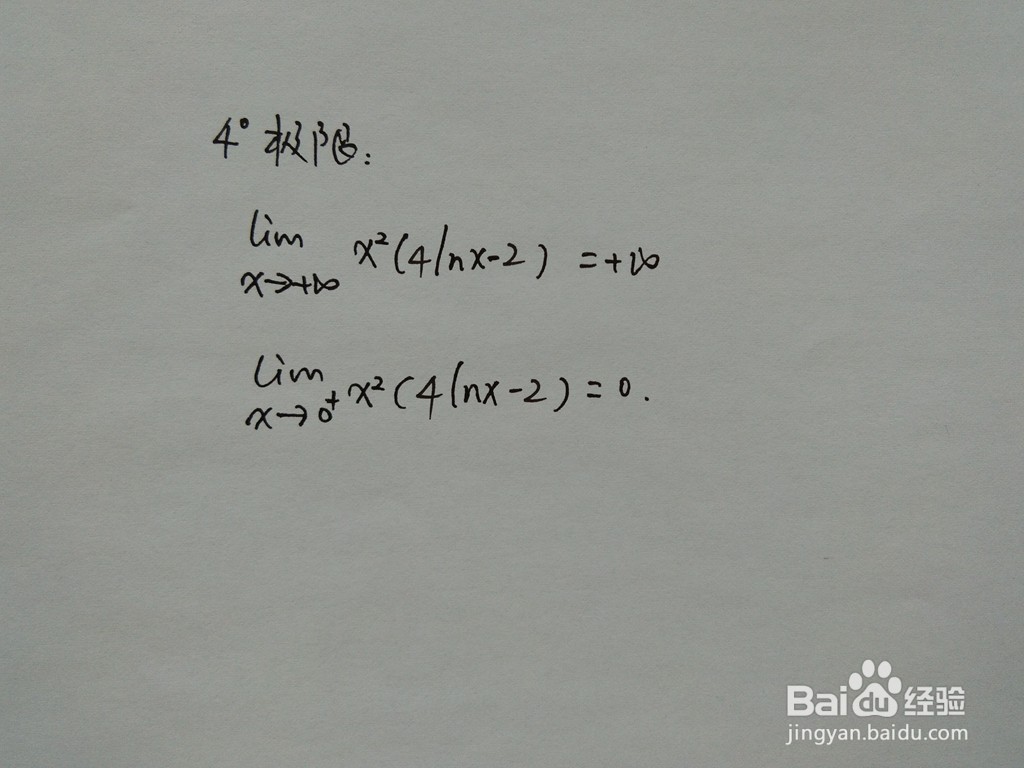 4° 极限:
lim x²(4lnx-2) =+∞
x→+∞
lim x²(4lnx-2)=0.
x→0⁺
Baidu 经验
jingyan.baidu.com